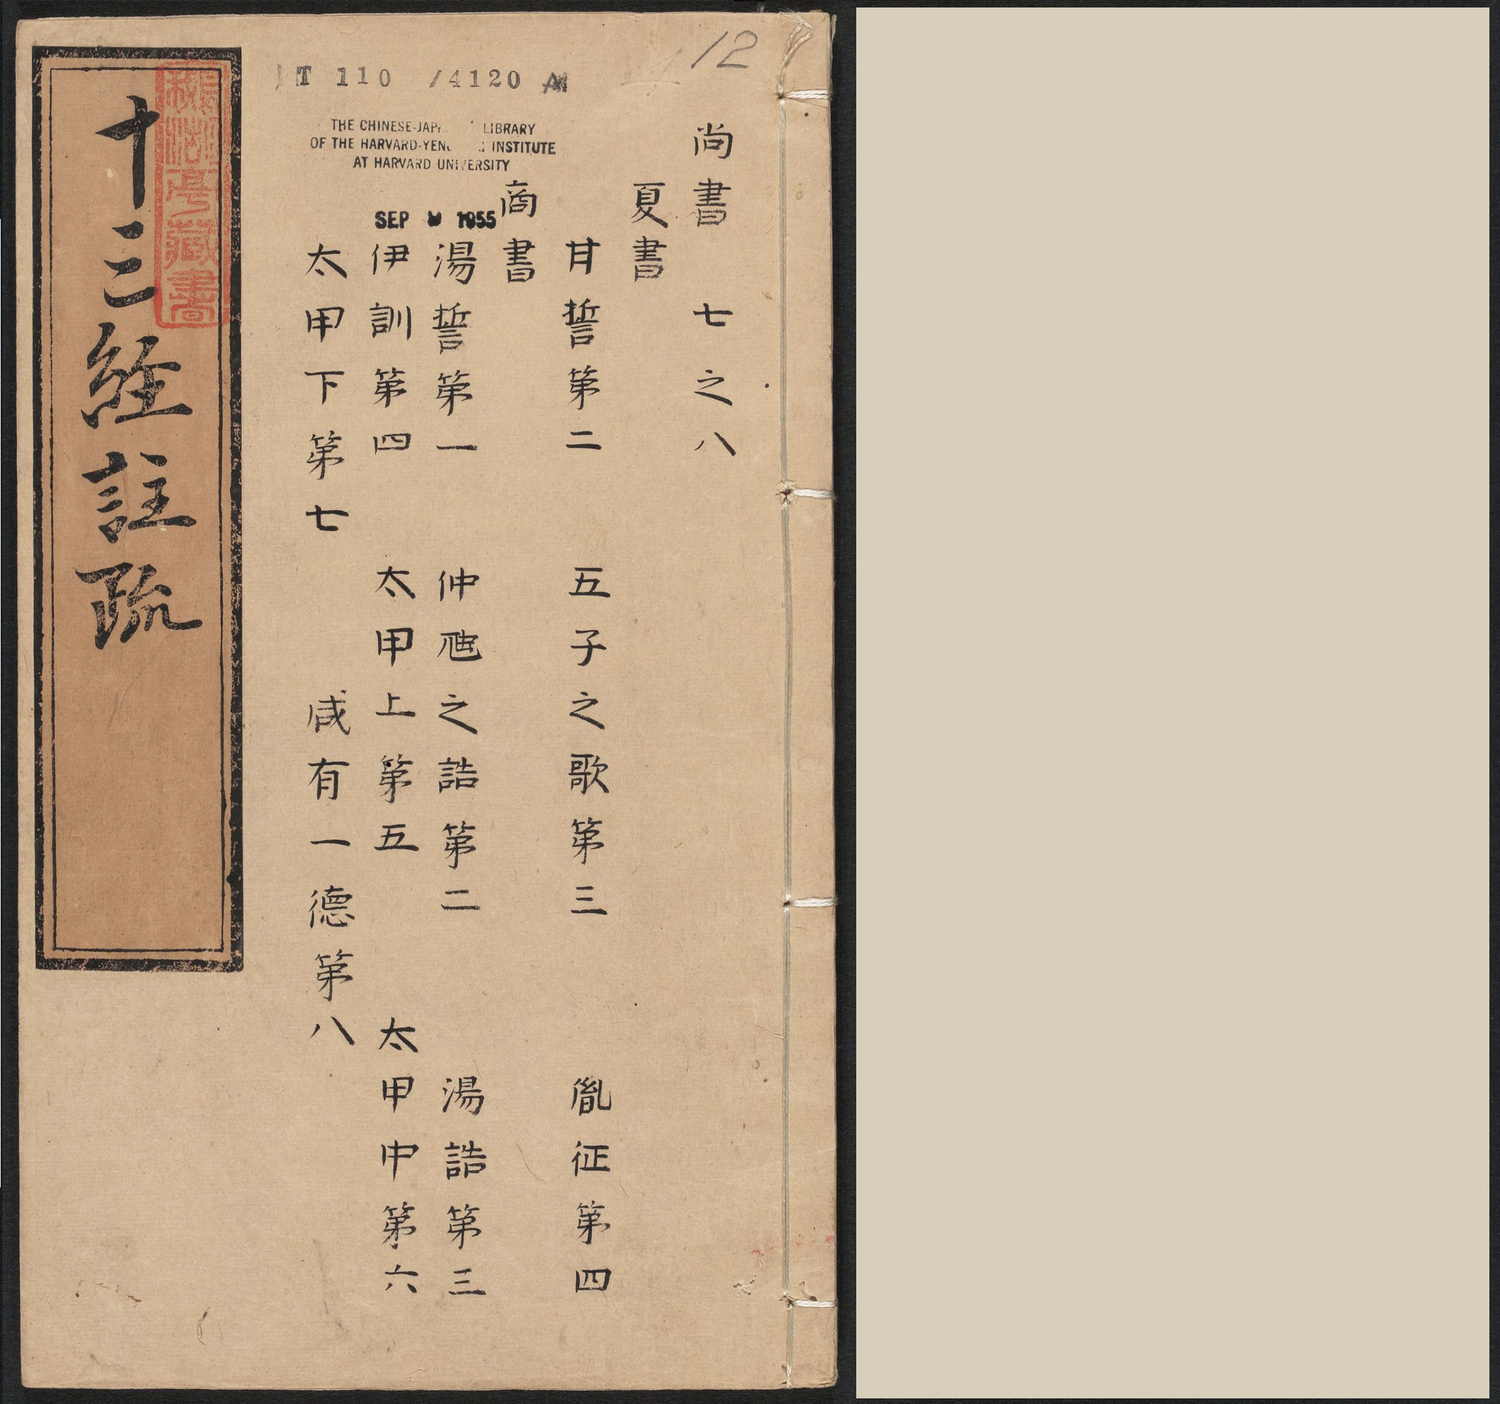 12
T 110 /4120
THE CHINESE-JAP LIBRARY
OF THE HARVARD-YEN INSTITUTE
AT HARVARD UNIVERSITY
SEP 1955
尚書 七之八
夏書
甘誓第二 五子之歌第三 胤征第四
商書
湯誓第一 仲虺之誥第二 湯誥第三
伊訓第四 太甲上第五 太甲中第六
太甲下第七 咸有一德第八
十三經註疏
湖亭藏書